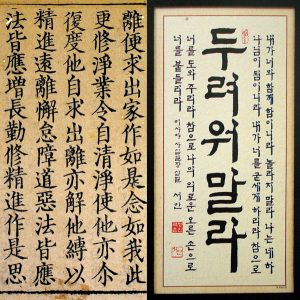 離便求出家作如是念如我此
更修淨業令自清淨使他亦尒
復度他自求出離亦解他縛以
精進遠離懈怠障道惡法皆應
法皆應增長勤修精進作是思
두려워 말라
내가 너와 함께 함이니라 놀라지 말라 나는 네 하
나님이 됨이니라 내가 너를 굳세게 하리라 참으로
너를 도와 주리라 참으로 나의 의로운 오른 손으로
너를 붙들리라
이사야 사십일장 십절